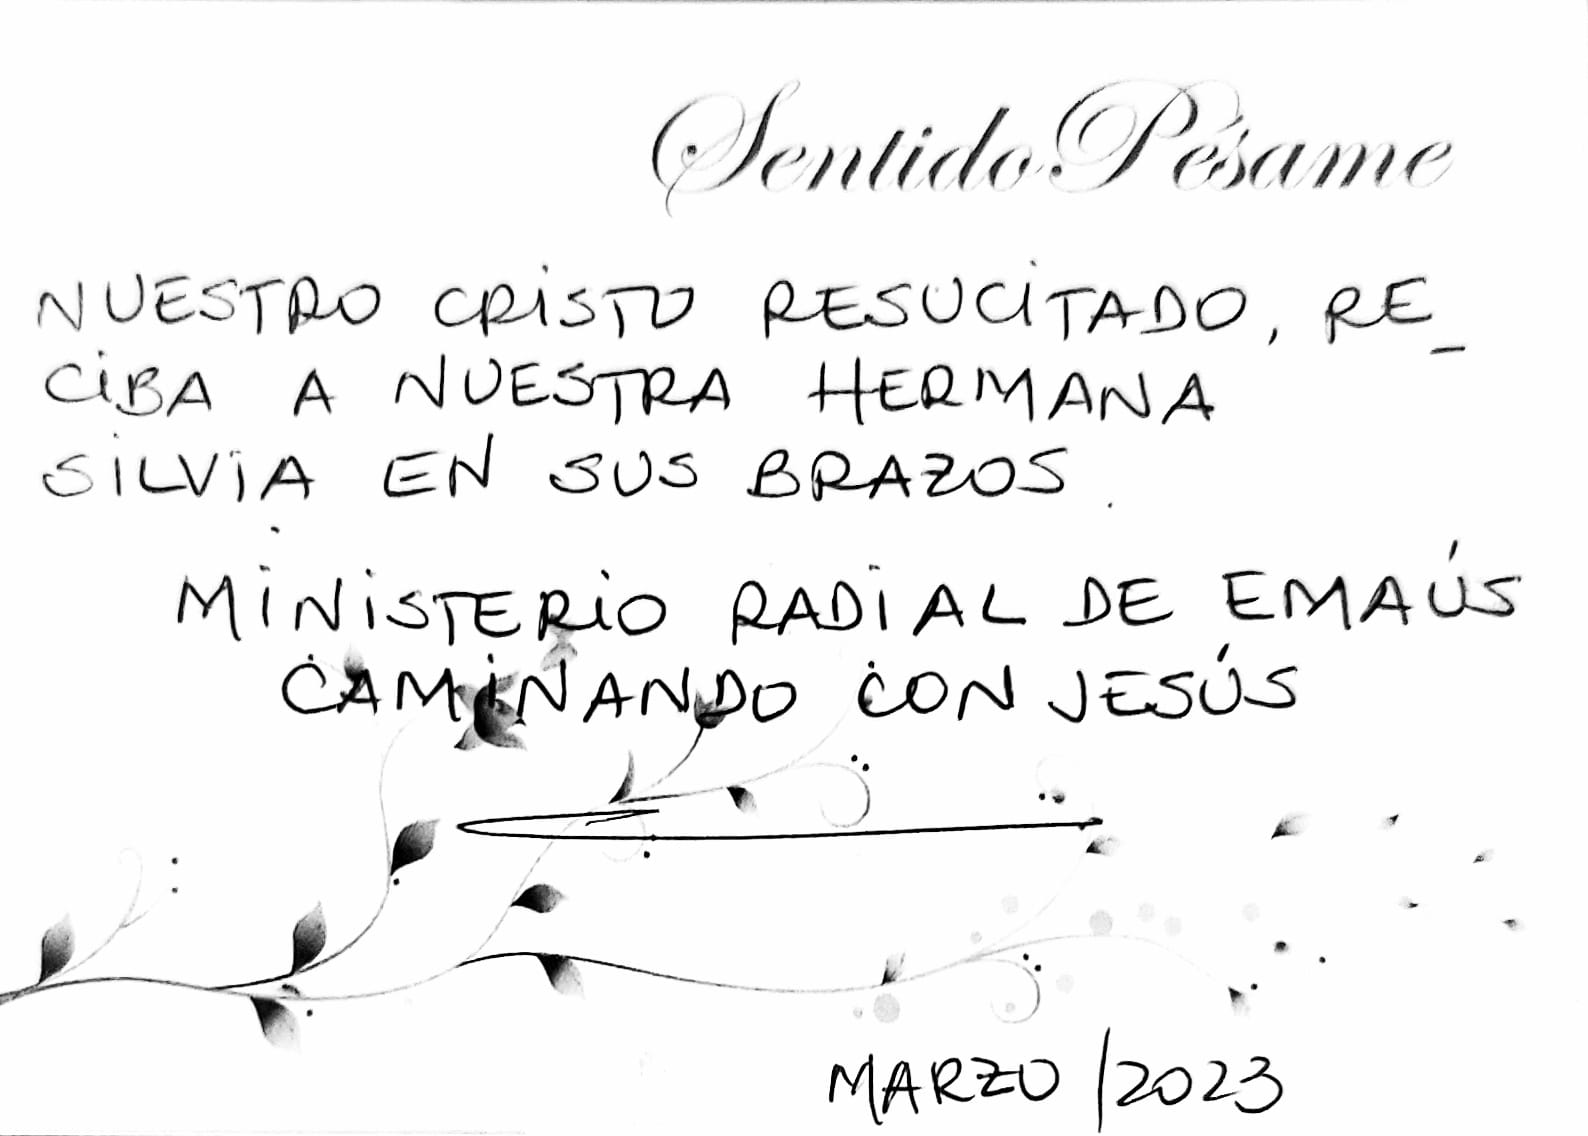 Sentido Pésame
NUESTRO CRISTO RESUCITADO, RE_
CIBA A NUESTRA HERMANA
SILVIA EN SUS BRAZOS.
MINISTERIO RADIAL DE EMAÚS
CAMINANDO CON JESÚS
MARZO /2023